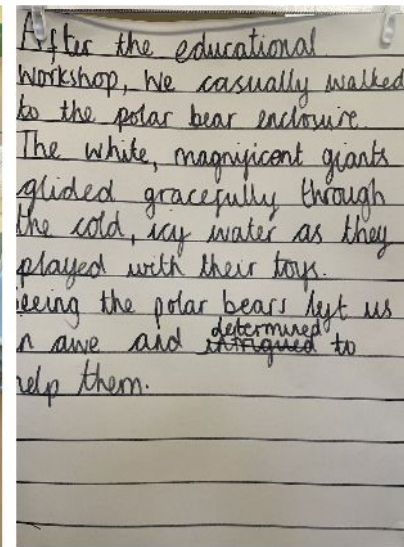 After the educational
Workshop, We casually walked
to the polar bear enclosure.
The white, magnificent giants
glided gracefully through
the cold, icy water as they
played with their toys.
eeing the polar bears left us
n awe and determined intrigued to
elp them.